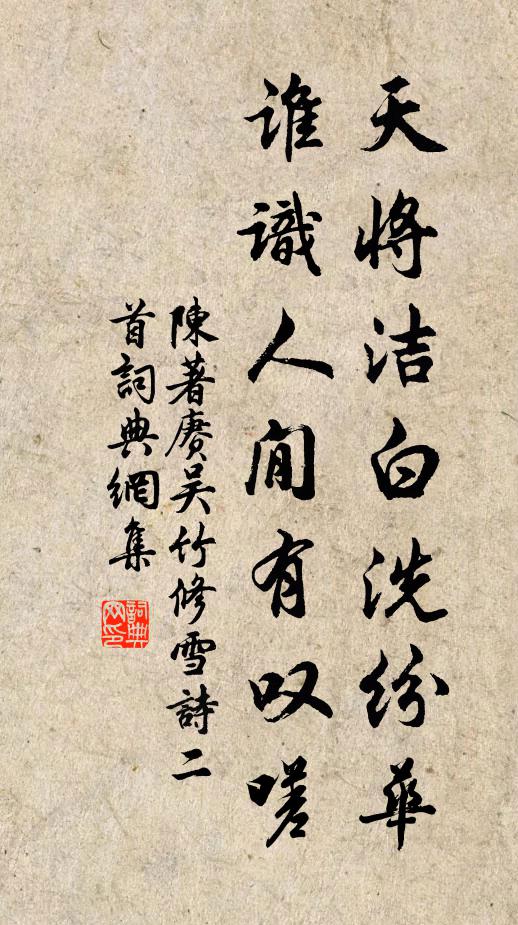 天将洁白洗纷華
谁識人间有叹嗟
陳著赓吴竹修雪詩二
首詞典網集
詞典网印